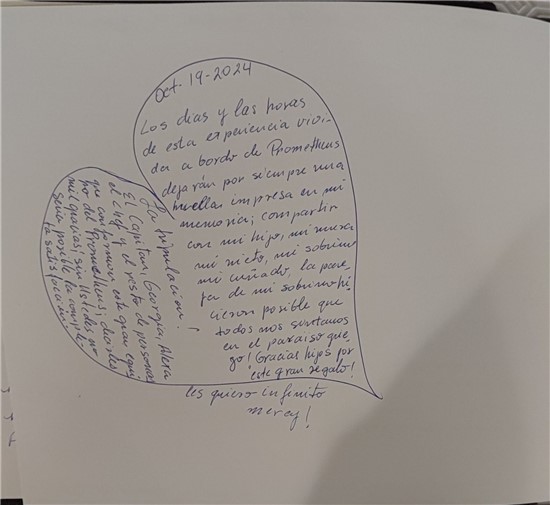 Oct. 19-2024
Los dias y las horas
de esta experiencia vivi-
da a bordo de Prometheus
dejarán por siempre una
huella impresa en mi
memoria; compartir
con mi hijo, mi nuera
mi nieto, mi sobrino
mi cuñado, la pare-
ja de mi sobrino hi-
cieron posible que
todos nos sintamos
en el paraiso grie-
go! Gracias hijos por
este gran regalo!
les quiero infinito
Mercy!
La tripulación!
El Capitan, Georgia,
el Chef y el resto de personas
que conforman este gran equi-
po del Prometheus; decirles
mil gracias, sin ustedes no
seria posible la comple-
ta satisfacción.